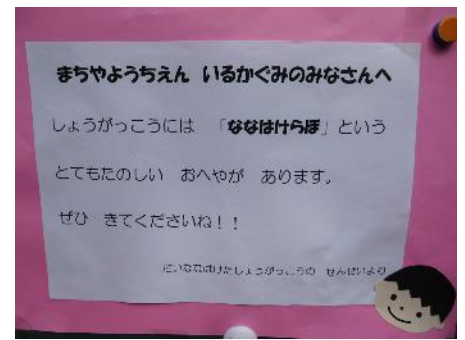 まちやようちえん いるかぐみのみなさんへ
しょうがっこうには 「ななはけらぼ」という
とてもたのしい おへやが あります。
ぜひ きてくださいね！！
だいななはけたしょうがっこうの せんせいより